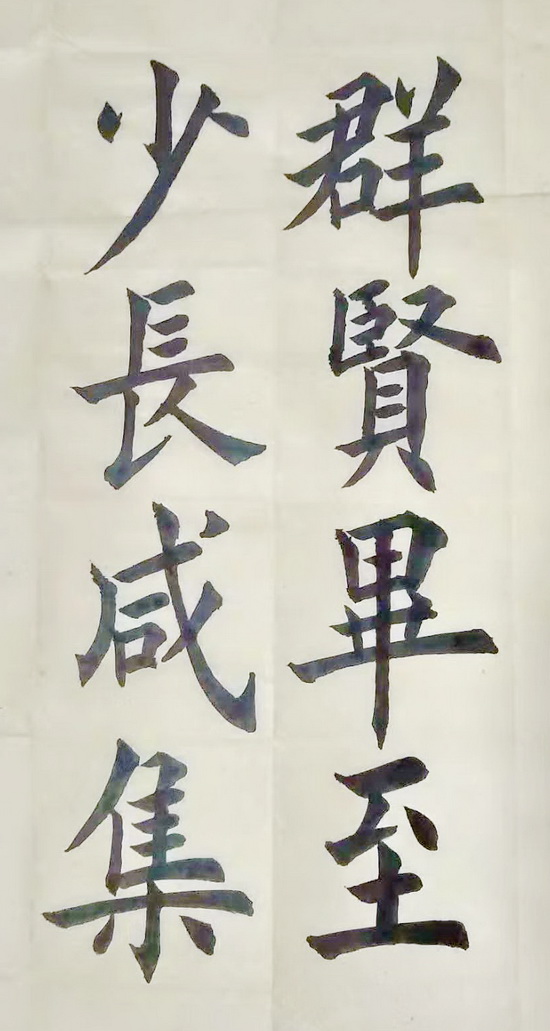 群賢畢至
少長咸集